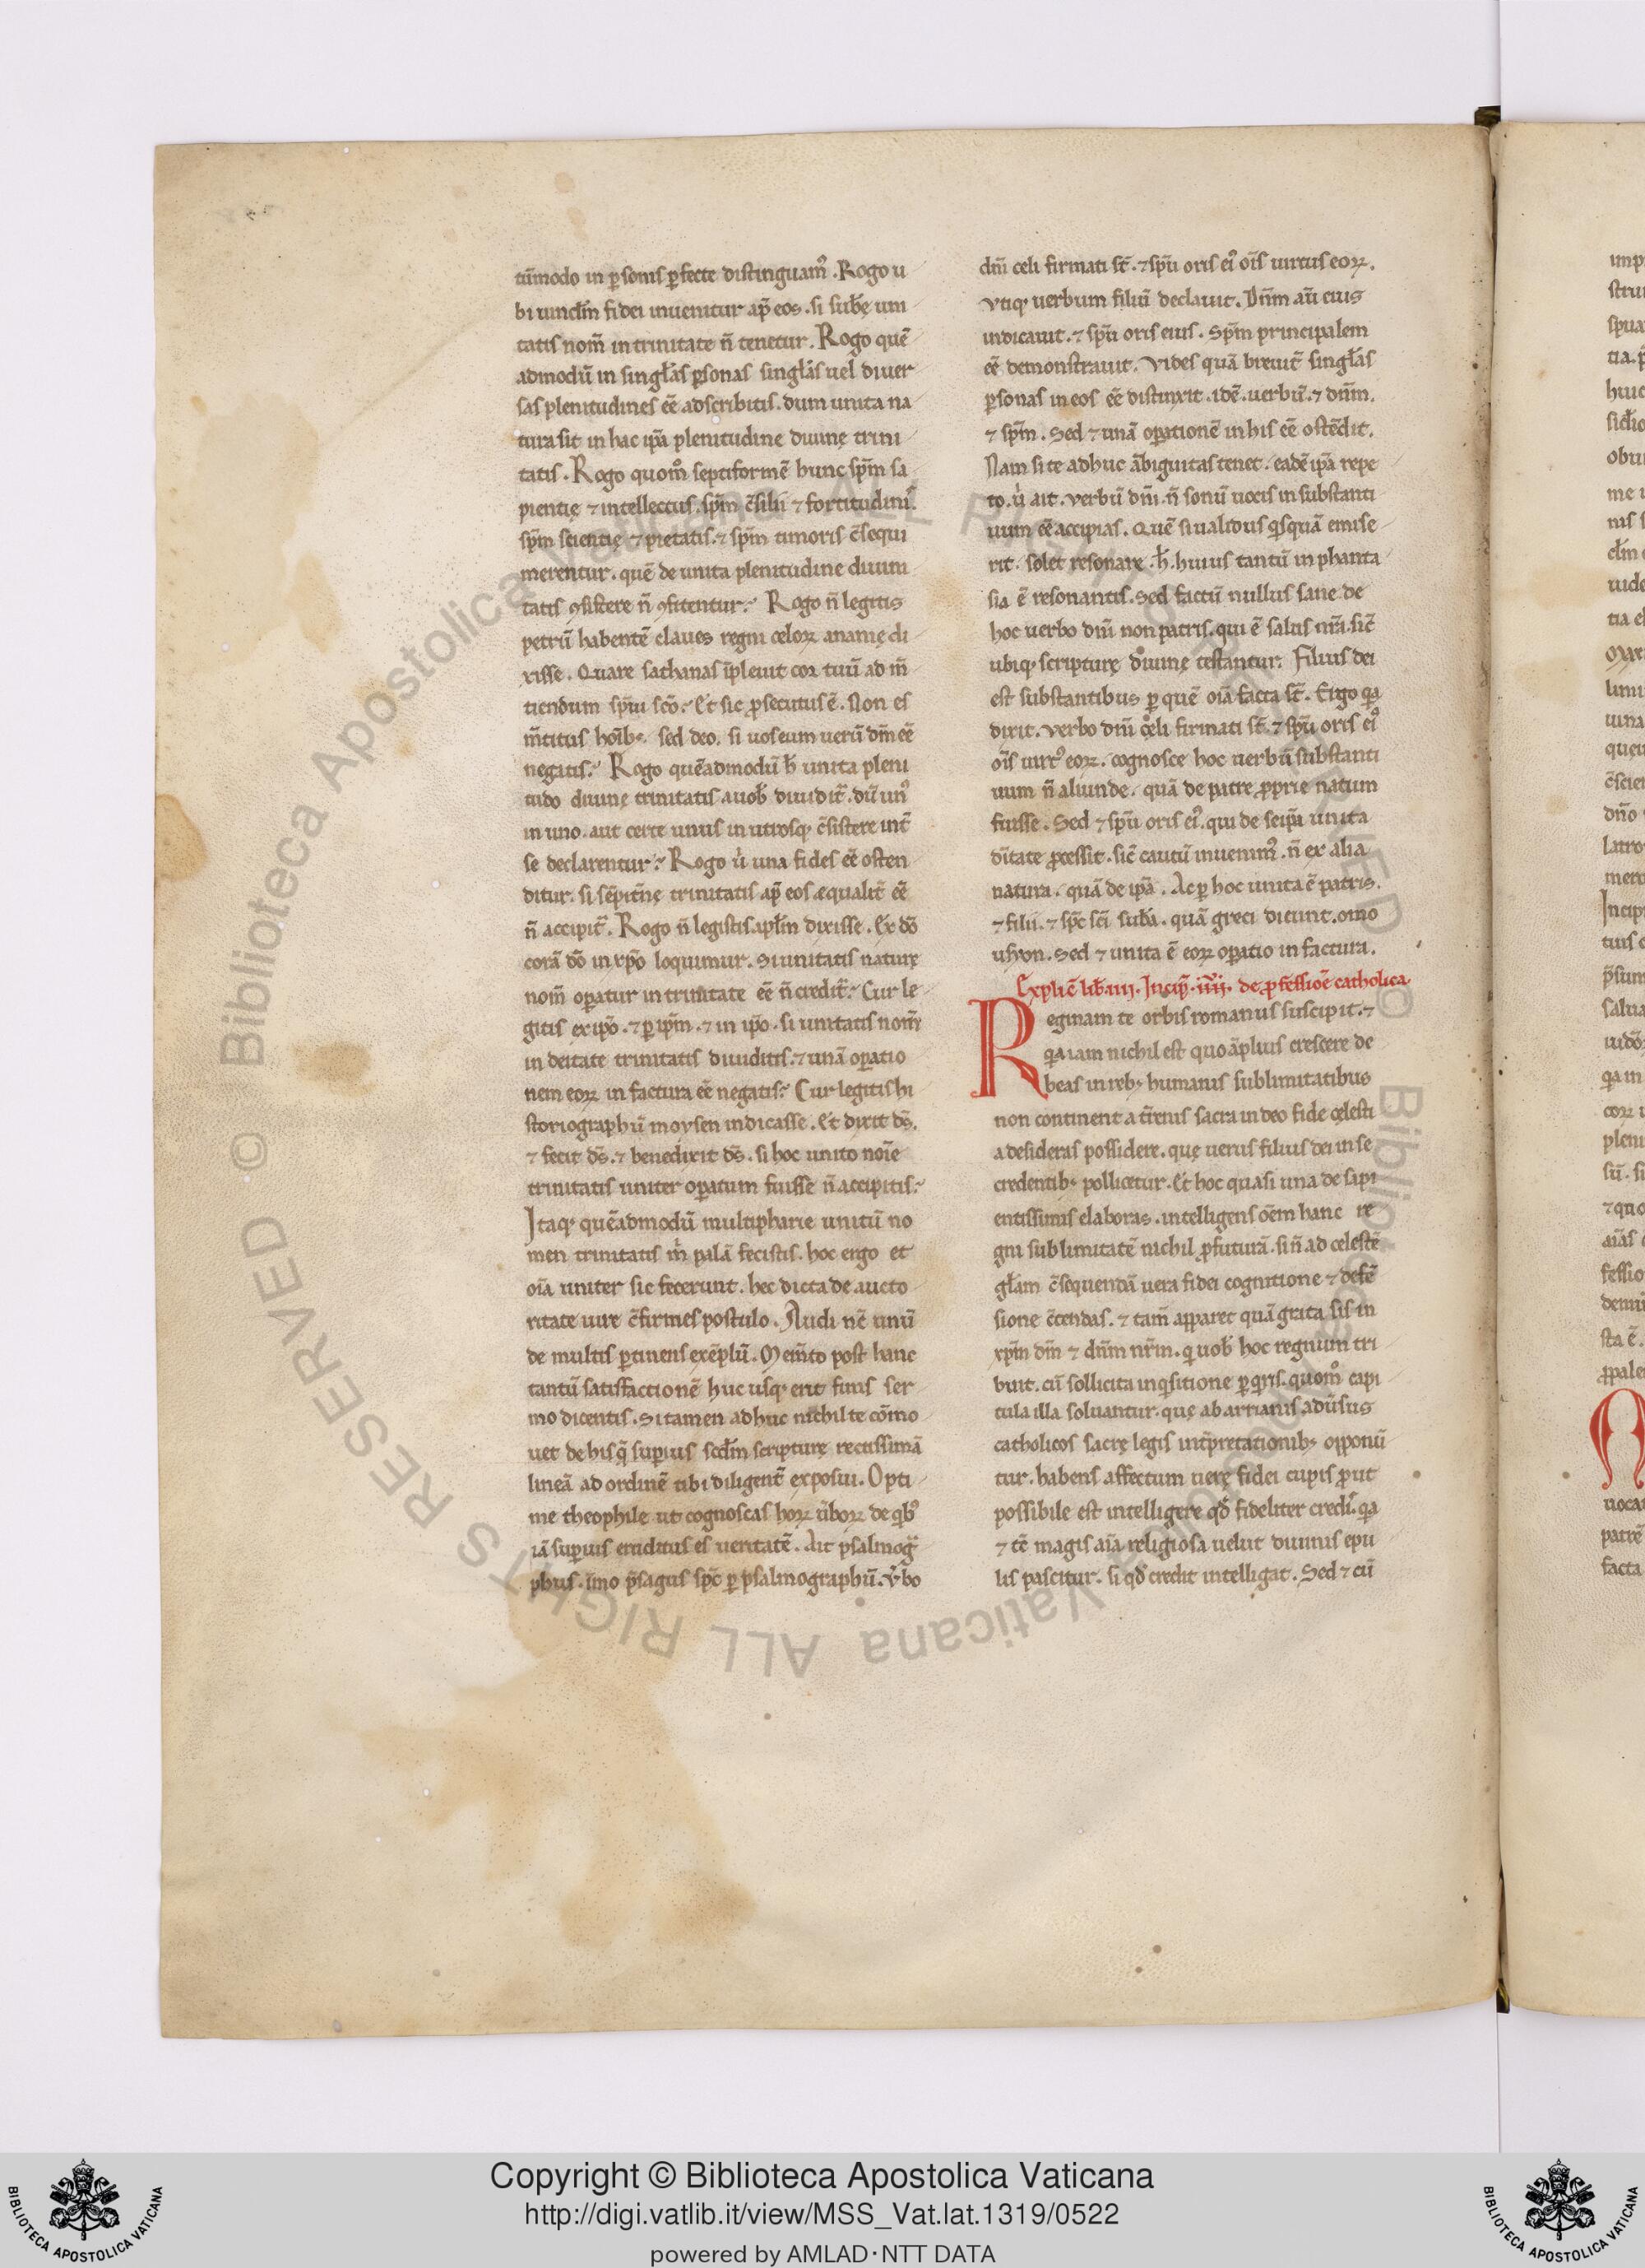 tũmodo in ꝑsonis ꝑfecte distinguam᷒. Rogo u
bi uincłm fidei inuenitur ap̃ eos. si sub̃ę uni
tatis nom̃ in trinitate ñ tenetur. Rogo quẽ
admodũ in singłas ꝑsonas singłas uel diuer
sas plenitudines eẽ adscribitis. dum unita na
tura sit in hac ip̃a plenitudine diuinę trini
tatis. Rogo quom̊ septiformẽ hunc sp̃m sa
pientię ⁊ intellectus. sp̃m c̃silii ⁊ fortitudinis.
sp̃m scientię ⁊ pietatis. ⁊ sp̃m timoris c̃sequi
merentur. quẽ de unita plenitudine diuini
tatis ꝯsistere ñ ꝯfitentur? Rogo ñ legitis
petrũ habentẽ claues regni celoꝝ ananię di
xisse. Quare sathanas ĩpleuit cor tuũ ad m̃
tiendum sp̃ui sc̃o? Et sic ꝓsecutus ẽ. Non es
m̃titus hoĩb; sed deo. si uos eum uerũ dm̃ eẽ
negatis? Rogo quẽadmodũ ħ unita pleni
tudo diuinę trinitatis a uob̃ diuidit᷑. dũ un᷒
in uno. aut certe unus in utrosq; c̃sistere int̃
se declarentur? Rogo ù una fides eẽ osten
ditur. si sẽpit̃nę trinitatis ap̃ eos ęqualit̃ eẽ
ñ accipit᷑. Rogo ñ legistis. ip̃łm dixisse. Ex dõ
corã dõ in xp̃o loquimur. Si unitatis naturę
nom̃ oꝑatur in trinitate eẽ ñ credit᷑? Cur le
gitis ex ip̃o. ⁊ ꝑ ip̃m. ⁊ in ip̃o. si unitatis nom̃
in deitate trinitatis diuiditis. ⁊ unã oꝑatio
nem eoꝝ in factura eẽ negatis? Cur legitis hi
storiographũ moysen indicasse. Et dixit ds̃.
⁊ fecit ds̃. ⁊ benedixit ds̃. si hoc unito noĩe
trinitatis uniter oꝑatum fuisse ñ accipitis?
Itaq; quẽadmodũ multipharie unitũ no
men trinitatis m̊ palã fecistis. hoc ergo et
oĩa uniter sic fecerunt. hec dicta de aucto
ritate iure c̃firmes postulo. Audi nc̃ unũ
de multis ꝑtinens exẽplũ. Mem̃to post hanc
tantũ satisfactionẽ huc usq; erit finis ser
mo dicentis. Si tamen adhuc nichil te cõmo
uet de his q̃ suꝑius scd̃m scripturę rectissimã
lineã ad ordinẽ tibi diligent̃ exposui. Opti
me theophile ut cognoscas hoꝝ ũboꝝ de qib᷒
iã suꝑius eruditus es ueritatẽ. Ait psalmog̃
phus. ĩmo p̃sagus sp̃c ꝑ psalmographũ. V̾bo
dnĩ celi firmati st̃. ⁊ sp̃u oris ei᷒ oĩs uirtus eoꝝ.
Vtiq; uerbum filiũ declauit. Dñm aũ eius
indicauit. ⁊ sp̃u oris eius. Sp̃m principalem
eẽ demonstrauit. Vides quã breuit̃ singłas
ꝑsonas in eos eẽ distinxit. idẽ. uerbũ. ⁊ dñm.
⁊ sp̃m. Sed ⁊ unã oꝑationẽ in his eẽ ostẽdit.
Nam si te adhuc ãbiguitas tenet. eadẽ ip̃a repe
to. ù ait. Verbũ dnĩ. ñ sonũ uocis insubstanti
uum eẽ accipias. Quẽ si ualidus qisquã emise
rit. solet resonare. ħ. huius tantũ in phanta
sia ẽ resonantis. Sed factũ nullus sane de
hoc uerbo dnĩ non patris. qui ẽ salus nr̃a. sic̃
ubiq; scripturę diuinę testantur. Filius dei
est substantibus ꝑ quẽ oĩa facta st̃. Ergo qa
dixit. verbo dnĩ cęli firmati st̃. ⁊ sp̃u oris ei᷒
oĩs uirt᷒ eoꝝ. cognosce hoc uerbũ substanti
uum ñ aliunde. quã de patre ꝓprie natum
fuisse. Sed ⁊ sp̃u oris ei᷒. qui de seip̃a unita
dĩtate ꝓcessit. sic̃ cautũ inuenim᷒. ñ ex alia
natura. quã de ip̃a. Ac ꝑ hoc unita ẽ patris.
⁊ filii. ⁊ sp̃c sc̃i sub̃a. quã greci dicunt. omo
usyon. Sed ⁊ unita ẽ eoꝝ oꝑatio in factura.
Explic̃ lib̃ .iii. Incip̃ .iiii. de ꝓfessiõe catholica
Reginam te orbis romanus suscipit. ⁊
qa iam nichil est quo ãplius crescere de
beas in reb; humanis sublimitatibus
non continent a t̃renis sacra in deo fide cęlesti
a desideras possidere. quę uerus filius dei in se
credentib; pollicetur. Et hoc quasi una de sapi
entissimis elaboras. intelligens oẽm hanc re
gni sublimitatẽ nichil ꝓfuturã. si ñ ad celestẽ
głam c̃sequendã uera fidei cognitione ⁊ defẽ
sione c̃tendas. ⁊ tam̃ apparet quã grata sis in
xp̃m dm̃ ⁊ dñm nr̃m. qi uob̃ hoc regnum tri
buit. cũ sollicita inqisitione ꝑqiris. quom̊ capi
tula illa soluantur. quę ab arrianis adũsus
catholicos sacrę legis int̃pretationib; opponũ
tur. habens affectum uerę fidei cupis ꝓut
possibile est intelligere qd̃ fideliter credi᷑. qa
⁊ tc̃ magis aĩa religiosa uelut diuinis epu
lis pascitur. si qd̃ credit intelligat. Sed ⁊ cũ
Copyright © Biblioteca Apostolica Vaticana
http://digi.vatlib.it/view/MSS_Vat.lat.1319/0522
powered by AMLAD·NTT DATA